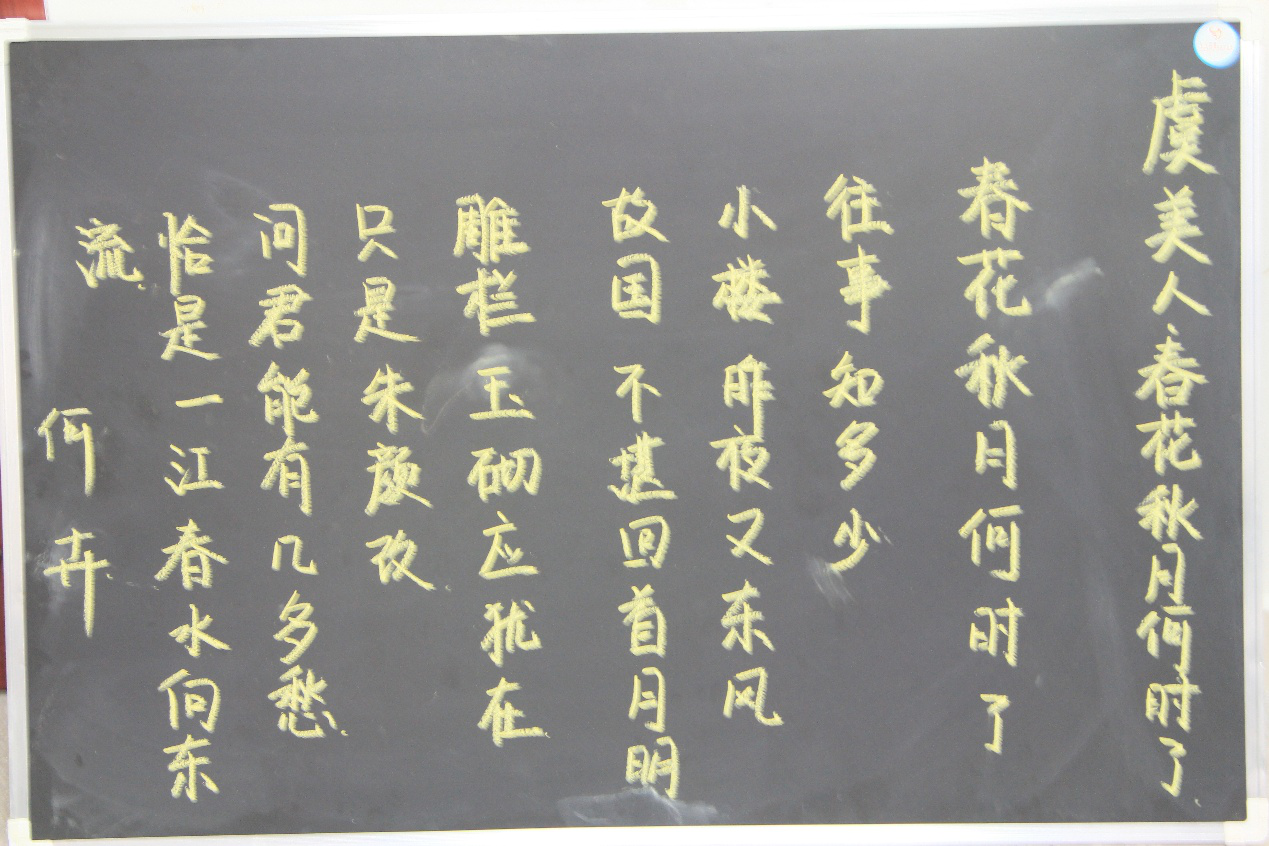 虞美人·春花秋月何时了
春花秋月何时了
往事知多少
小楼昨夜又东风
故国不堪回首月明
雕栏玉砌应犹在
只是朱颜改
问君能有几多愁
恰是一江春水向东
流
何卉